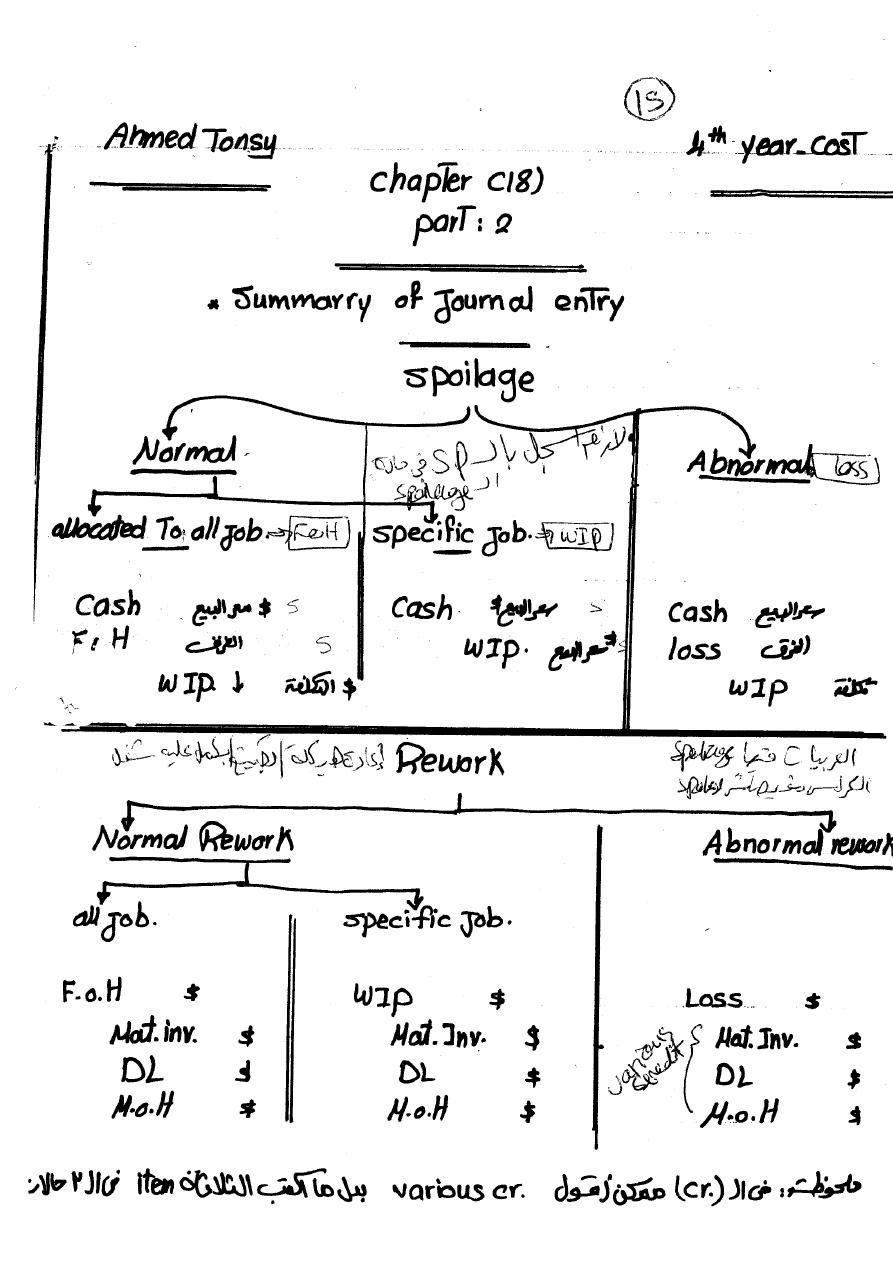 15
Ahmed Tonsy
4th year-cost
chapter C18)
part: 2
* Summarry of Journal entry
spoilage
Normal
Abnormal loss
spoilage الـ
allocated To all job. → F.o.H
specific job. → WIP
Cash سعر البيع $ S
F.o.H الفرق S
WIP ↓ التكلفة $
Cash سعر البيع $ S
WIP. سعر البيع $ S
Cash سعر البيع
loss الفرق
WIP تكلفة
Rework
Normal Rework
Abnormal rework
all job.
specific job.
F.o.H $
Mat. inv. $
DL $
M.o.H $
WIP $
Mat. Inv. $
DL $
M.o.H $
Loss $
various
Mat. Inv. $
DL $
M.o.H $
ملحوظة: فى الـ (cr.) ممكن أقول various cr. بدل ما أكتب الثلاثة item فى الـ ٣ حالات